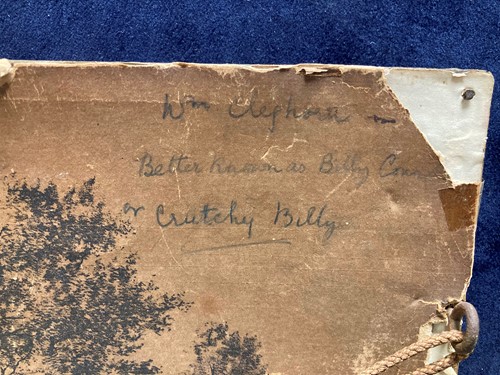 Wm Cleghorn
Better known as Billy
or Crutchy Billy